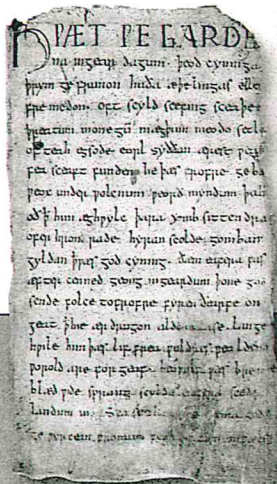 HǷÆT ǷE GARDE
na ingear dagum · þeod cyninga
þrym ge frunon huða æþelingas elle
fre medon · oft scyld scefing sceaþe
þreatum monegū mægþum meodo setla
of teah egsode eorl syððan ærest ƿear
fea sceaft funden he þæs frofre geba
ƿeox under ƿolcnum ƿeorð myndum þah
oð þ him æghƿylc þara ymb sittendra
ofer hron rade hyran scolde gomban
gyldan þ ƿæs god cyning · ðæm eafera ƿæs
æfter cenned geong in geardum þone god
sende folce tofrofre fyren ðearfe on
geat þ hie ær drugon aldor ase. lange
hƿile him þæs lif frea ƿuldres ƿealdend
ƿorold are for geaf. beoƿulf ƿæs breme
blæd ƿide sprang scyldes eafera scede
landum in. Sƿa sceal uma gode
ge ƿyrcean fromum feoh